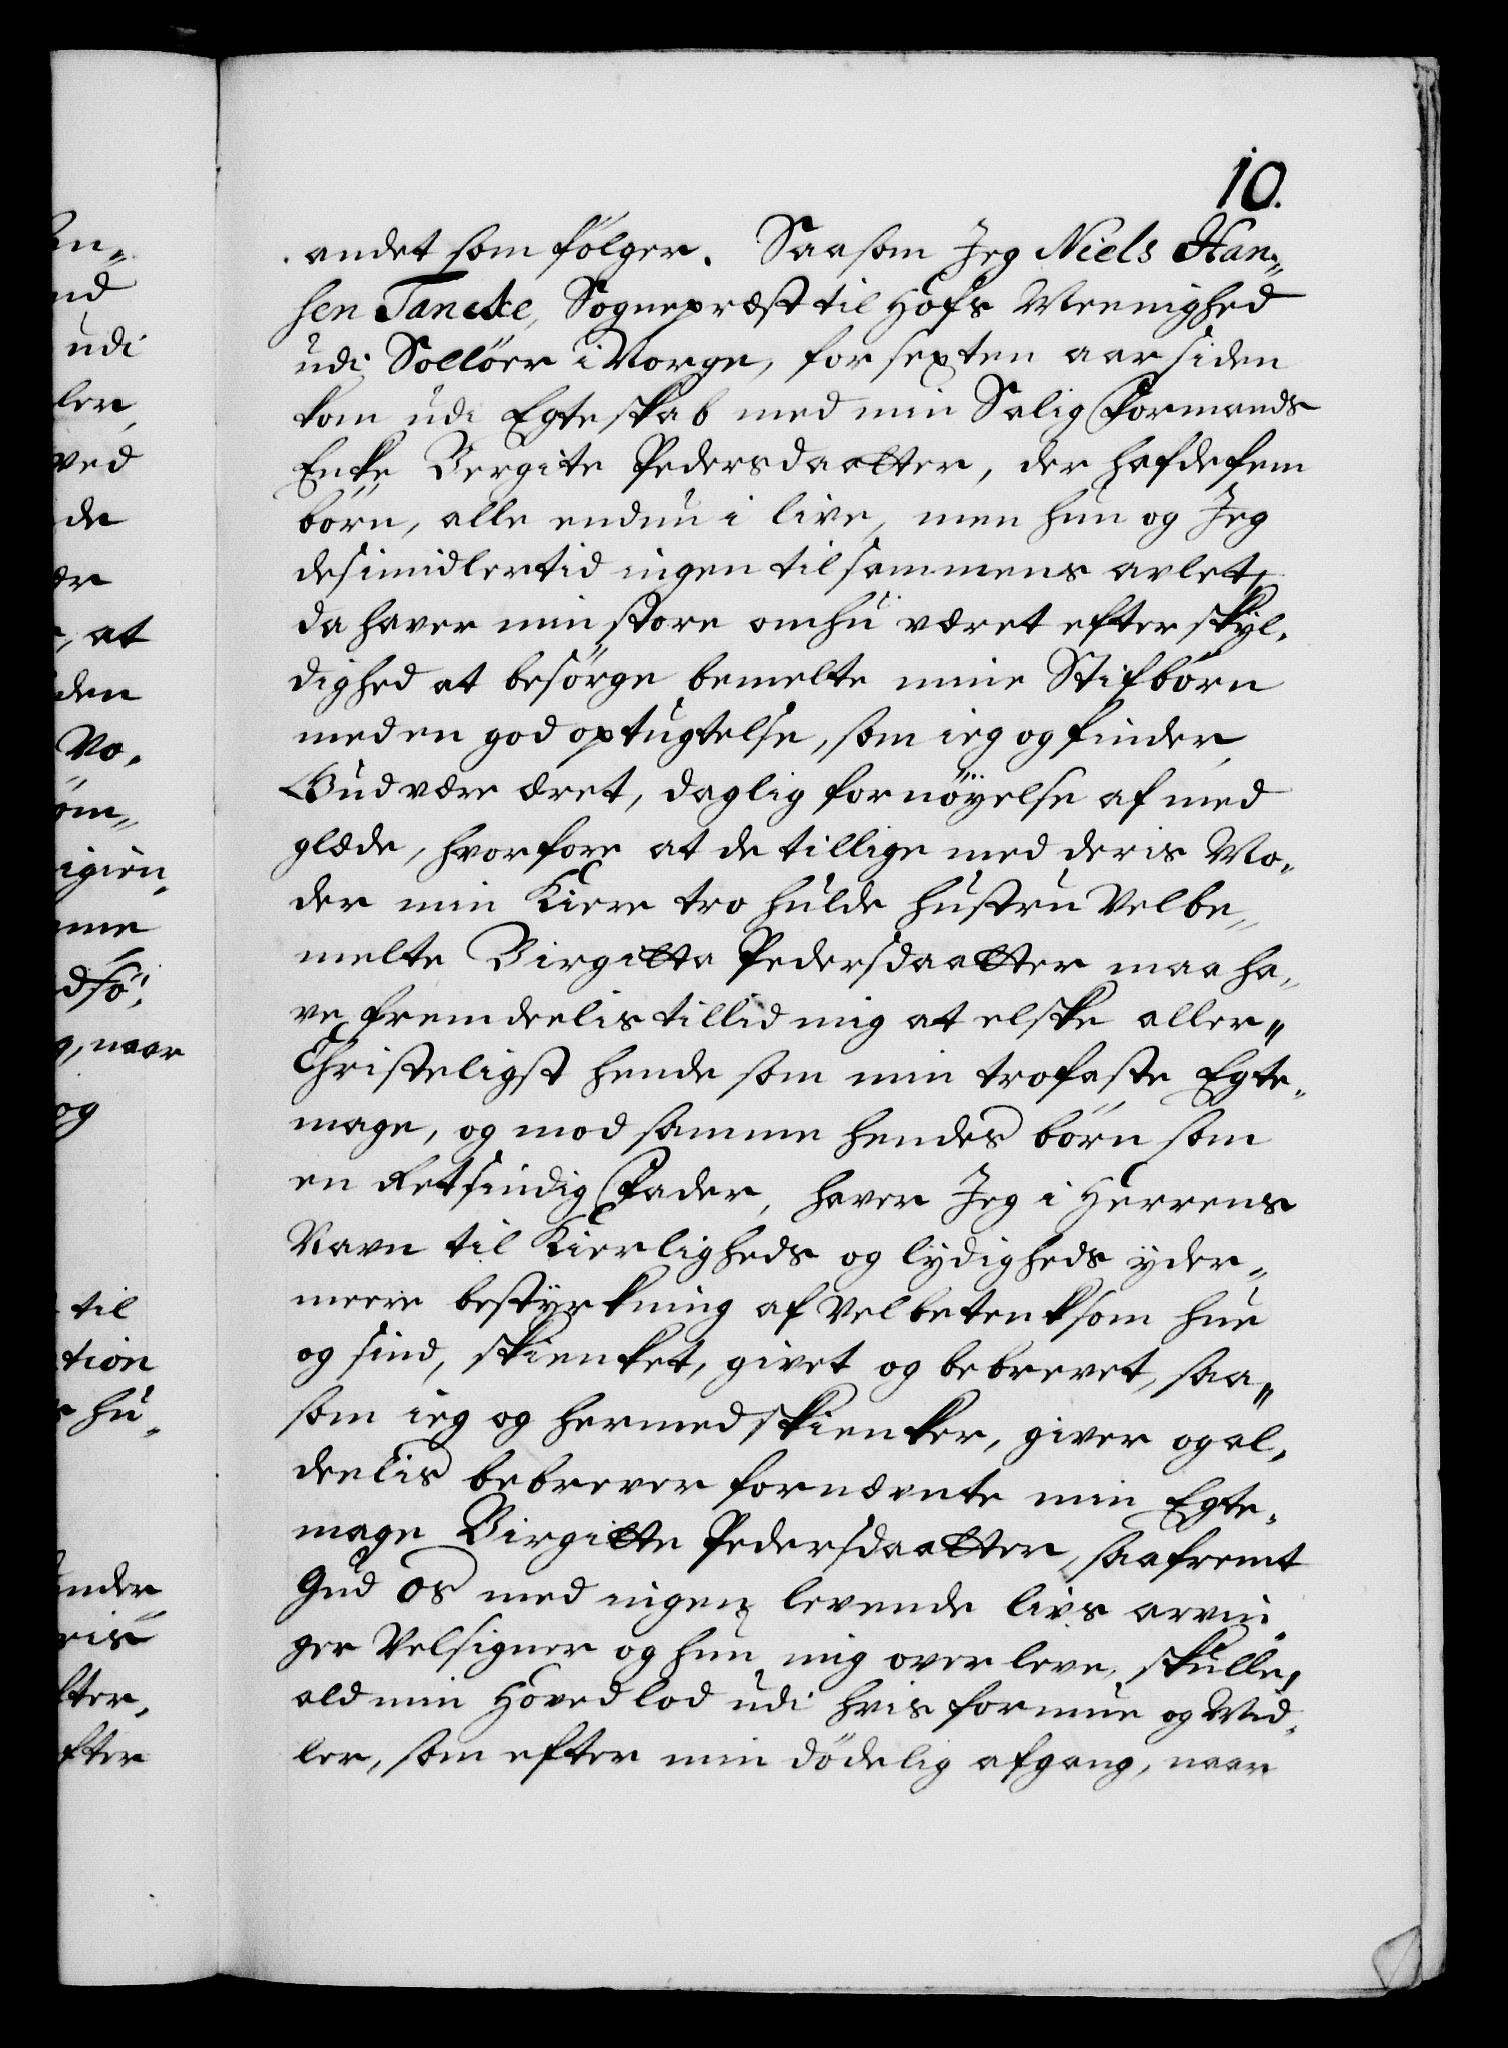 10.
andet som fölger. Saasom Jeg Niels Han-
sen Tancke, Sognepræst til Hofs Meenighed
udi Sollöer i Norge, for sexten aar siden
kom udi Egteskab med min Salig Formands
Enke Bergite Pedersdaatter, der hafde fem
börn, alle endnu i live, men hun og Jeg
desimidlertid ingen tilsammens avlet,
da haver min store omhu været efter skyl-
dighed at besörge bemelte mine Stifbörn
med en god optugtelse, som ieg og finder,
Gud være æret, daglig fornöyelse af med
glæde, hvorfore at de tillige med deris Mo-
der min Kiere tro hulde hustru Velbe-
melte Birgitta Pedersdaatter maa ha-
ve fremdeelis tillid mig at elske aller-
Christeligst hende som min trofaste Egte-
mage, og mod samme hendes börn som
en Retsindig Fader, haver Jeg i Herrens
Navn til Kierligheds og lydigheds yder-
meere bestyrkning af velbetenksom hue
og sind, skienket, givet og bebrevet, saa-
som ieg og hermed skienker, giver og al-
deelis bebrever fornævnte min Egte-
mage Birgitte Pedersdaatter, saafremt
Gud os med ingen levende livs arvin-
ger Velsigner og hun mig overleve, skulle,
ald min Hovedlod udi hvis formue og Mid-
ler, som efter min dödelig afgang, naar
en-
nd
udi
ler,
ved
de
er
, at
den
No-
öm-
igien,
me
dsö-
g, naar
og
til
tion
s hu-
under
eris
fter,
fter